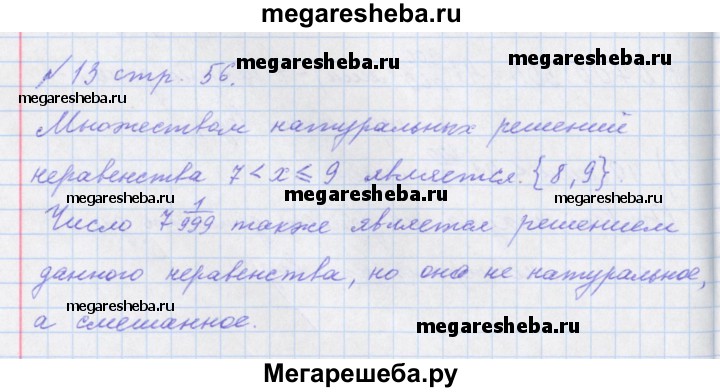 megaresheba.ru
№13 стр. 56.
megaresheba.ru
megaresheba.ru
megaresheba.ru
Множеством натуральных решений
неравенства 7 < x ≤ 9 является {8, 9}.
megaresheba.ru
megaresheba.ru
Число 7 1/999 также является решением
данного неравенства, но оно не натуральное,
а смешанное.
megaresheba.ru
megaresheba.ru
Мегарешеба.ру